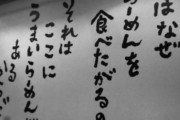 はなぜ
らーめんを
食べたがるの
それは
ここに
うまいらーめん
ある